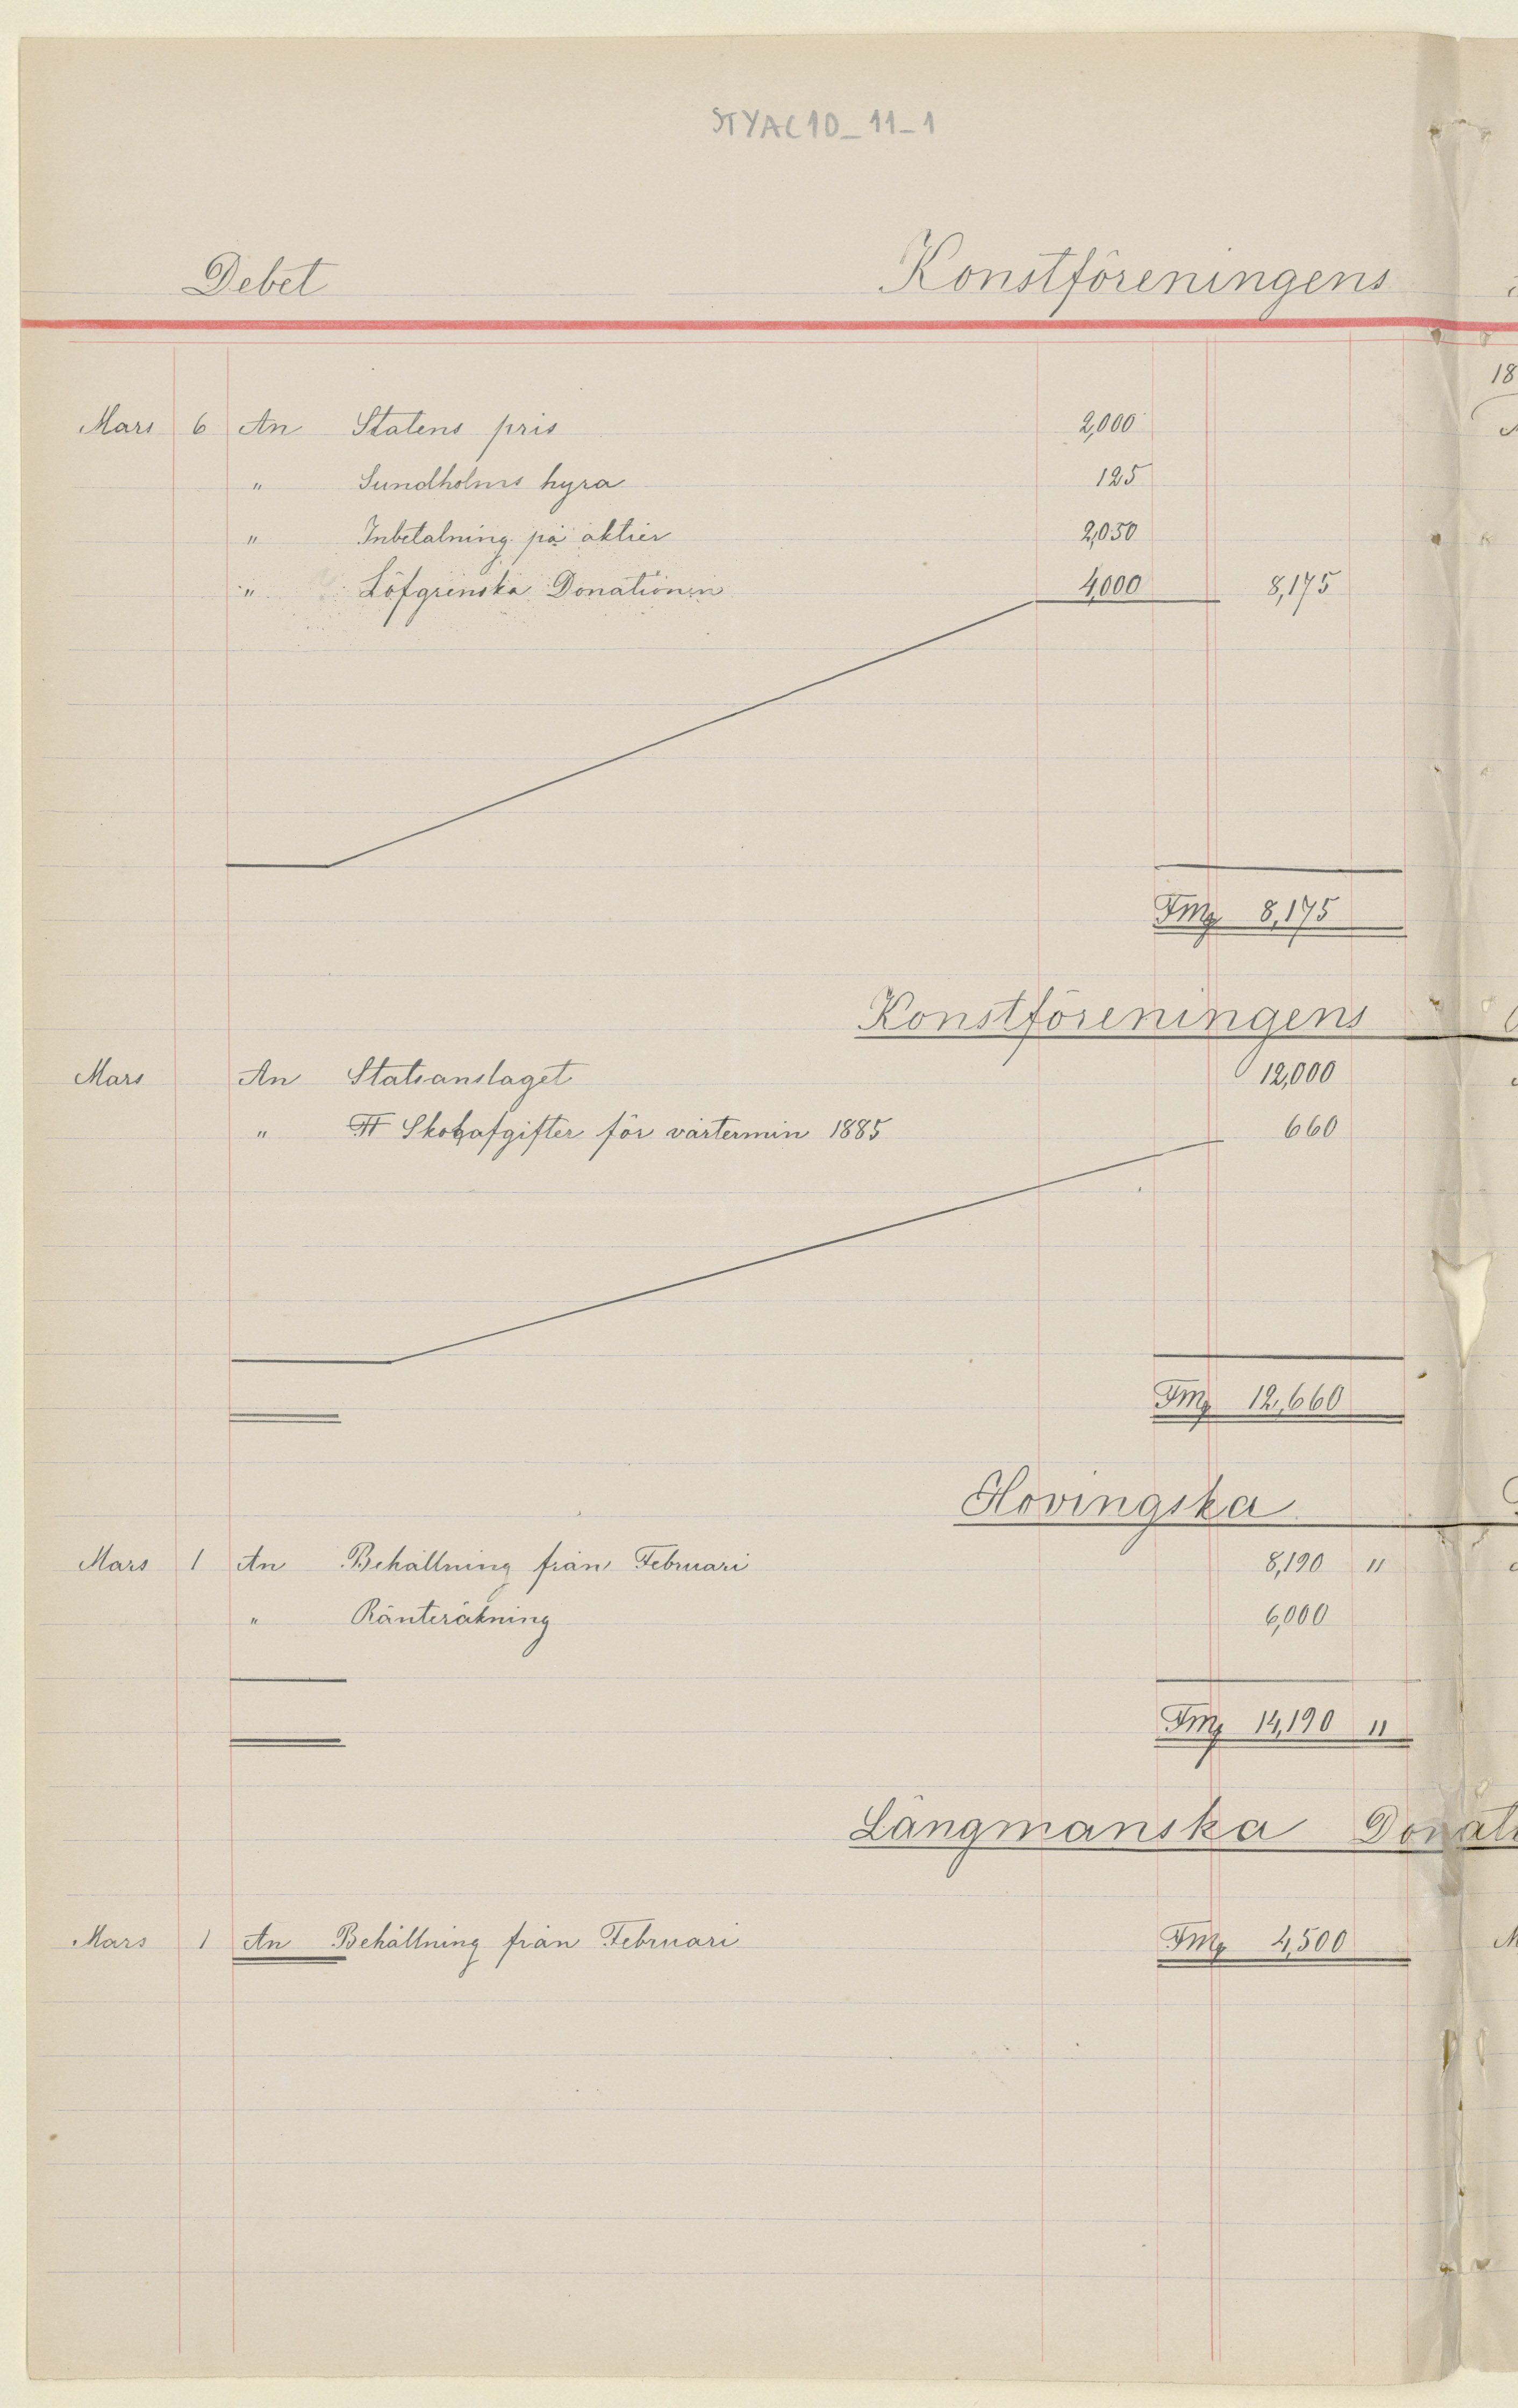 STYAC10_11-1
Debet Konstföreningens
18
Mars 6 An Statens pris 2,000
" Sundholms hyra 125
" Inbetalning på aktier 2,050
" Löfgrenska Donationen 4,000 8,175
Fmg 8,175
Konstföreningens
Mars An Statsanslaget 12,000
" Skolafgifter för vårtermin 1885 660
Fmg 12,660
Hovingska
Mars 1 An Behållning från Februari 8,190 11
" Ränteräkning 6,000
Fmg 14,190 11
Längmanska Donati
Mars 1 An Behållning från Februari Fmg 4,500